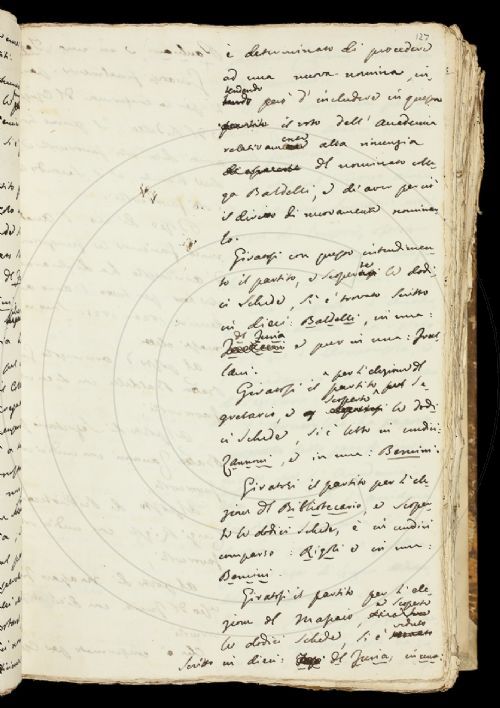 127
è determinato di procedere
ad una nuova nomina, in
tendendo
però d'includere in questo
partito il voto dell'Accademia
relativamente alla rinunzia
del nominato colle
ga Baldelli, e di aver perciò
il diritto di nuovamente nominar
lo.
Giratosi con questo intendimen
to il partito, e scoperte le dodi
ci schede, si è trovato scritto
in dieci: Baldelli, in una:
del Furia
e pur in una:
Giratosi il partito per l'elezione del Se
scoperte
gretario, e le dodi
ci schede, si è letto in undici
Zannoni, e in una: Bencini.
Giratosi il partito per l'ele
zione del Bibliotecario, e scoper
te le dodici schede, è in undici
comparso: Rigoli e in una:
Bencini.
Giratosi il partito per l'ele
zione del Massaio, e scoperte
le dodici schede, si è veduto
scritto in dieci: del Furia, in una: